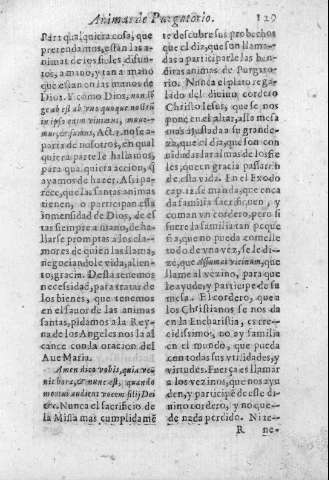 Animas de Purgatorio. 129
Para qualquiera cosa, que
pretendamos, están las a-
nimas de los fieles difun-
tos, a mano, y tan a mano
que están en las manos de
Dios. Y como Dios, non lõ
ge ab est ab vno quoque nostrũ
in ipso enim viuimus, moue-
mur, & sumus, Act. 17. no se a-
parta de nosotros, en qual
quiera parte le hallamos,
para qualquiera accion, q̃
ayamos de hazer. Assi pa-
rece, que las santas animas
tienen, o participan essa
inmensidad de Dios, de es
tar siempre a mano, de ha-
llarse promptas a los cla-
mores de quien las llama,
negociandole vida, alien-
to, gracia. Desta tenemos
necessidad, para tratar de
los bienes, que tenemos
en el fauor de las animas
santas, pidamos a la Rey-
na de los Angeles nos la al
cance con la oracion del
Aue Maria.
Amen dico vobis, quia ve-
nit hora, & nunc est, quando
mortui audient vocem filij Dei
&c. Nunca el sacrificio de
la Missa mas cumplidamẽ
te descubre sus prouechos
que el dia, que son llama-
das a participarle las ben-
ditas animas de Purgato-
rio. Nunca el plato rega-
lado del diuino cordero
Christo Iesus, que se nos
pone en el altar, assi mesa
mas ajustada a su grande-
za, que el dia, que son con
uidadas las almas de los fie
les, que en gracia passaron
de esta vida. En el Exodo
cap. 12. se manda, que en ca
da familia sacrifiquen, y
coman vn cordero, pero si
fuere la familia tan peque
ña, que no pueda comelle
todo de vna vez, se le di-
ze, que assumat vicinum, que
llame al vezino, para que
le ayude, y participe de su
mesa. El cordero, que a
los Christianos se nos da
en la Eucharistia, es cre-
cidissimo, no ay familia
en el mundo, que pueda
con todas sus vtilidades, y
virtudes. Fuerça es llamar
a los vezinos, que nos ayu
den, y participẽ de este di-
uino cordero, y no que-
de nada perdido. Ni te-
R ne-